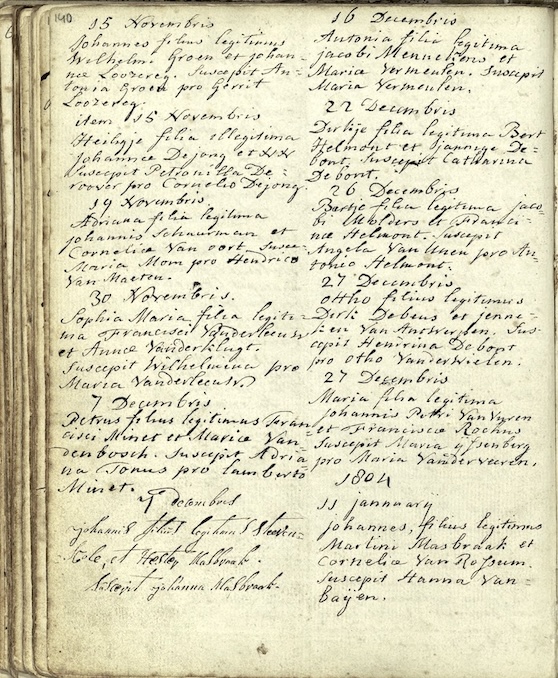 140
15 Novembris
Johannes filius legitimus
Wilhelmi Groen et Johan-
næ Loozereg. Suscepit An-
tonia Groen pro Gerrit
Loozereg.
item 15 Novembris
Heiligje filia illegitima
Johannæ Dejong et NN
Suscepit Petronilla De-
roover pro Cornelio Dejong.
19 Novembris
Adriana filia legitima
Johannis Schuurman et
Corneliæ Van oort. Susce-
Maria Mom pro Hendrico
Van Maeten.
30 Novembris.
Sophia Maria filia legiti-
ma Francisci Vanderleeuw
et Annæ Vanderklugt.
Suscepit Wilhelmina pro
Maria Vanderleeuw
7 Decembris
Petrus filius legitimus Fran-
cisci Minet et Mariæ Van-
denbosch. Suscepit Adria-
na Tonus pro lamberto
Minet.
9 Decembris
Johannis filius legitimus Steven-
Kole, et Hester Masbraak.
Suscepit Johanna Masbraak.
16 Decembris
Antonia filia legitima
Jacobi Mennekens et
Maria Vermeulen. Suscepit
Maria Vermeulen.
22 Decembris
Dirkije filia legitima Bert
Helmont et Jannige De-
bont. Suscepit Catharina
Debont.
26 Decembris
Bartje filia legitima Jaco-
bi Molders et Franci-
næ Helmont. Suscepit
Angela Van Unen pro An-
tonio Helmont.
27 Decembris
Otho filius legitimus
Dirk Debeus et Jenne-
ken Van Antwerpen. Sus-
cepit Henrina Debont
pro Otho VanderWielen.
27 Decembris
Maria filia legitima
Johannis Petri Van Vuren
et Franciscæ Rochus
Suscepit Maria ijssenberg
pro Maria Vanderveuren.
1804
11 Jannuarij
Johannes, filius legitimus
Martini Masbraak et
Corneliæ Van Rossum.
Suscepit Hanna Van
Baijen.